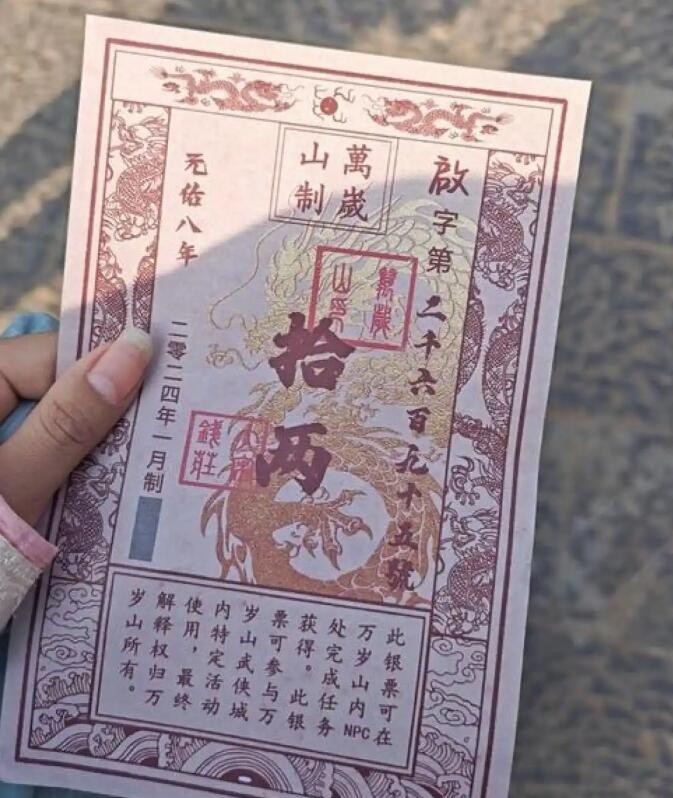 啟字第二千六百九十五號
萬歲
山制
萬歲
山印
拾两
大宋
錢莊
元佑八年
二零二四年一月制
此银票可在
万岁山内NPC
处完成任务
获得。此银
票可参与万
岁山武侠城
内特定活动
使用，最终
解释权归万
岁山所有。